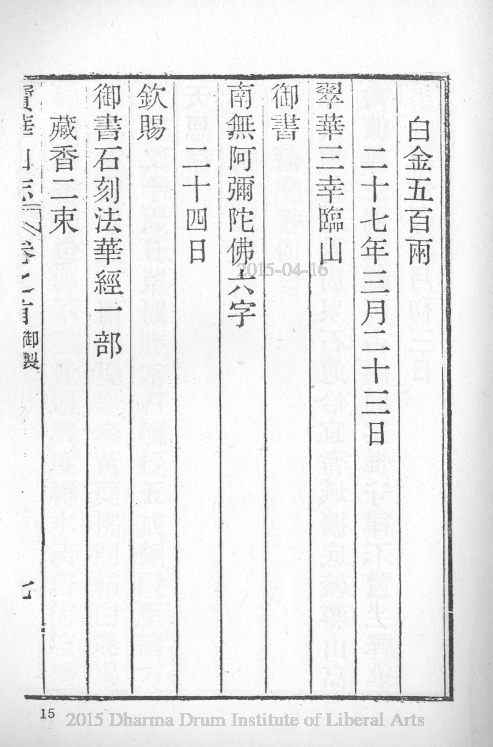 白金五百兩
二十七年三月二十三日
翠華三幸臨山
御書
南無阿彌陀佛六字
二十四日
欽賜
御書石刻法華經一部
藏香二束
寶華山志 卷之首 御製 七
15
2015-04-16
2015 Dharma Drum Institute of Liberal Arts